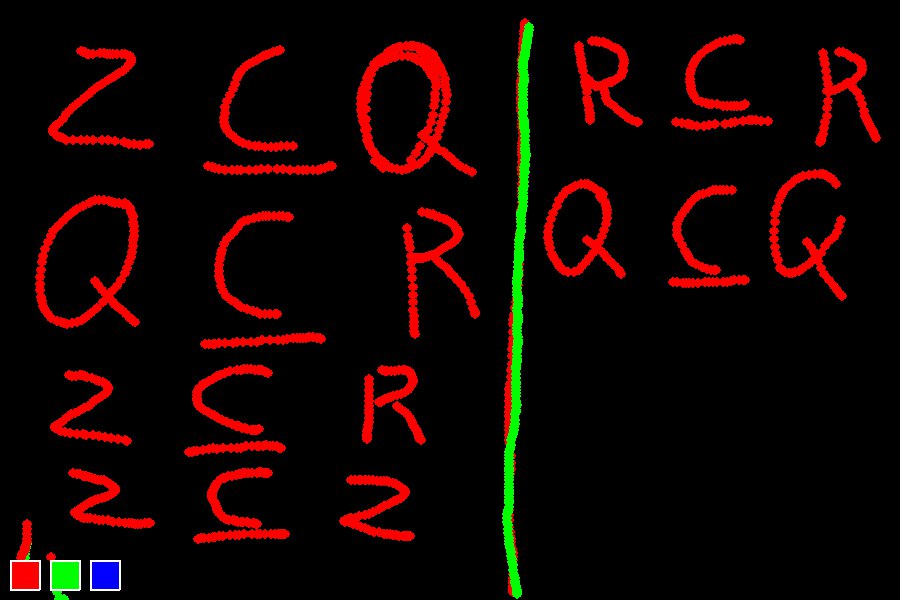 Z ⊆ Q
Q ⊆ R
Z ⊆ R
Z ⊆ Z
R ⊆ R
Q ⊆ Q